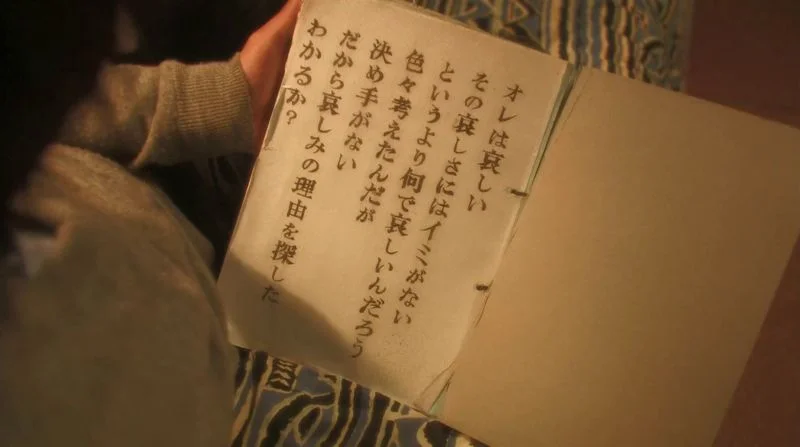 オレは哀しい
その哀しさにはイミがない
というより何で哀しいんだろう
色々考えたんだが
決め手がない
だから哀しみの理由を探した
わかるか？